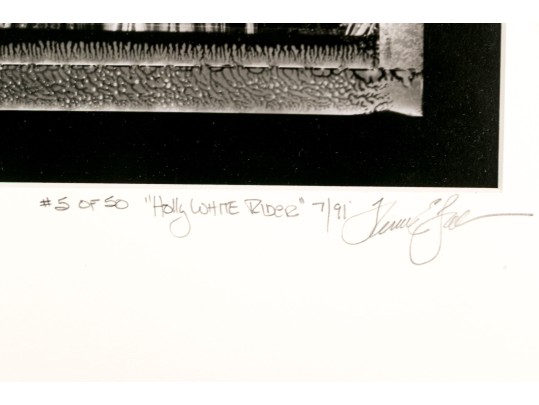 #5 OF 50 "Holly WHITE RIDER" 7/91